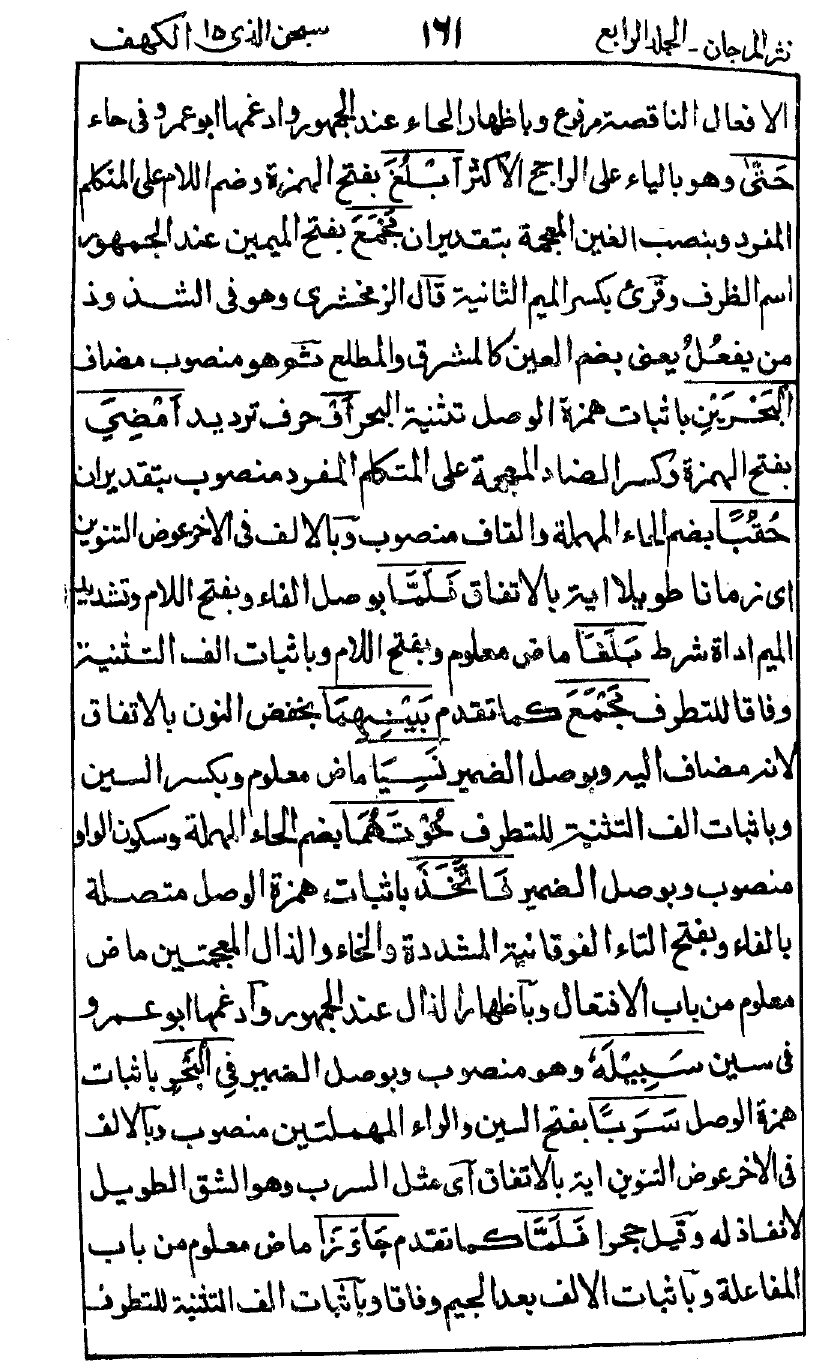 نثر المرجان ـ المجلد الرابع ١٦١ سبحن الذی ١٥ الكهف
الافعال الناقصة مرفوع وباظهار الحاء عند الجمهور وادغمها ابو عمرو فی حاء
حَتّٰی وهو بالياء علی الراجح الاكثر اَبْلُغَ بفتح الهمزة وضم اللام علی المتكلم
المفرد وبنصب الغين المعجمة بتقدير ان مَجْمَعَ بفتح الميمين عند الجمهور
اسم الظرف وقرئ بكسر الميم الثانية قال الزمخشری وهو فی الشذوذ
من يفعُلُ يعنی بضم العين كالمشرق والمطلع ثم هو منصوب مضاف
اَلْبَحْرَيْنِ باثبات همزة الوصل تثنية البحر اَوْ حرف ترديد اَمْضِیَ
بفتح الهمزة وكسر الضاد المعجمة علی المتكلم المفرد منصوب بتقدير ان
حُقُبًا بضم الحاء المهملة والقاف منصوب وبالالف فی الاخر عوض التنوين
ای زمانا طويلا اية بالاتفاق فَلَمَّا بوصل الفاء وبفتح اللام وتشديد
الميم اداة شرط بَلَغَا ماض معلوم وبفتح اللام وباثبات الف التثنية
وفاقا للتطرف مَجْمَعَ كما تقدم بَيْنِهِمَا بخفض النون بالاتفاق
لانه مضاف اليه وبوصل الضمير نَسِيَا ماض معلوم وبكسر السين
وباثبات الف التثنية للتطرف حُوْتَهُمَا بضم الحاء المهملة وسكون الواو
منصوب وبوصل الضمير فَاتَّخَذَ باثبات همزة الوصل متصلة
بالفاء وبفتح التاء الفوقانية المشددة والخاء والذال المعجمتين ماض
معلوم من باب الافتعال وباظهار الذال عند الجمهور وادغمها ابو عمرو
فی سين سَبِيْلَهٗ وهو منصوب وبوصل الضمير فِی الْبَحْرِ باثبات
همزة الوصل سَرَبًا بفتح السين والراء المهملتين منصوب وبالالف
فی الاخر عوض التنوين اية بالاتفاق ای مثل السرب وهو الشق الطويل
لانفاذ له وقيل جحرا فَلَمَّا كما تقدم جَاوَزَا ماض معلوم من باب
المفاعلة وباثبات الالف بعد الجيم وفاقا وباثبات الف التثنية للتطرف